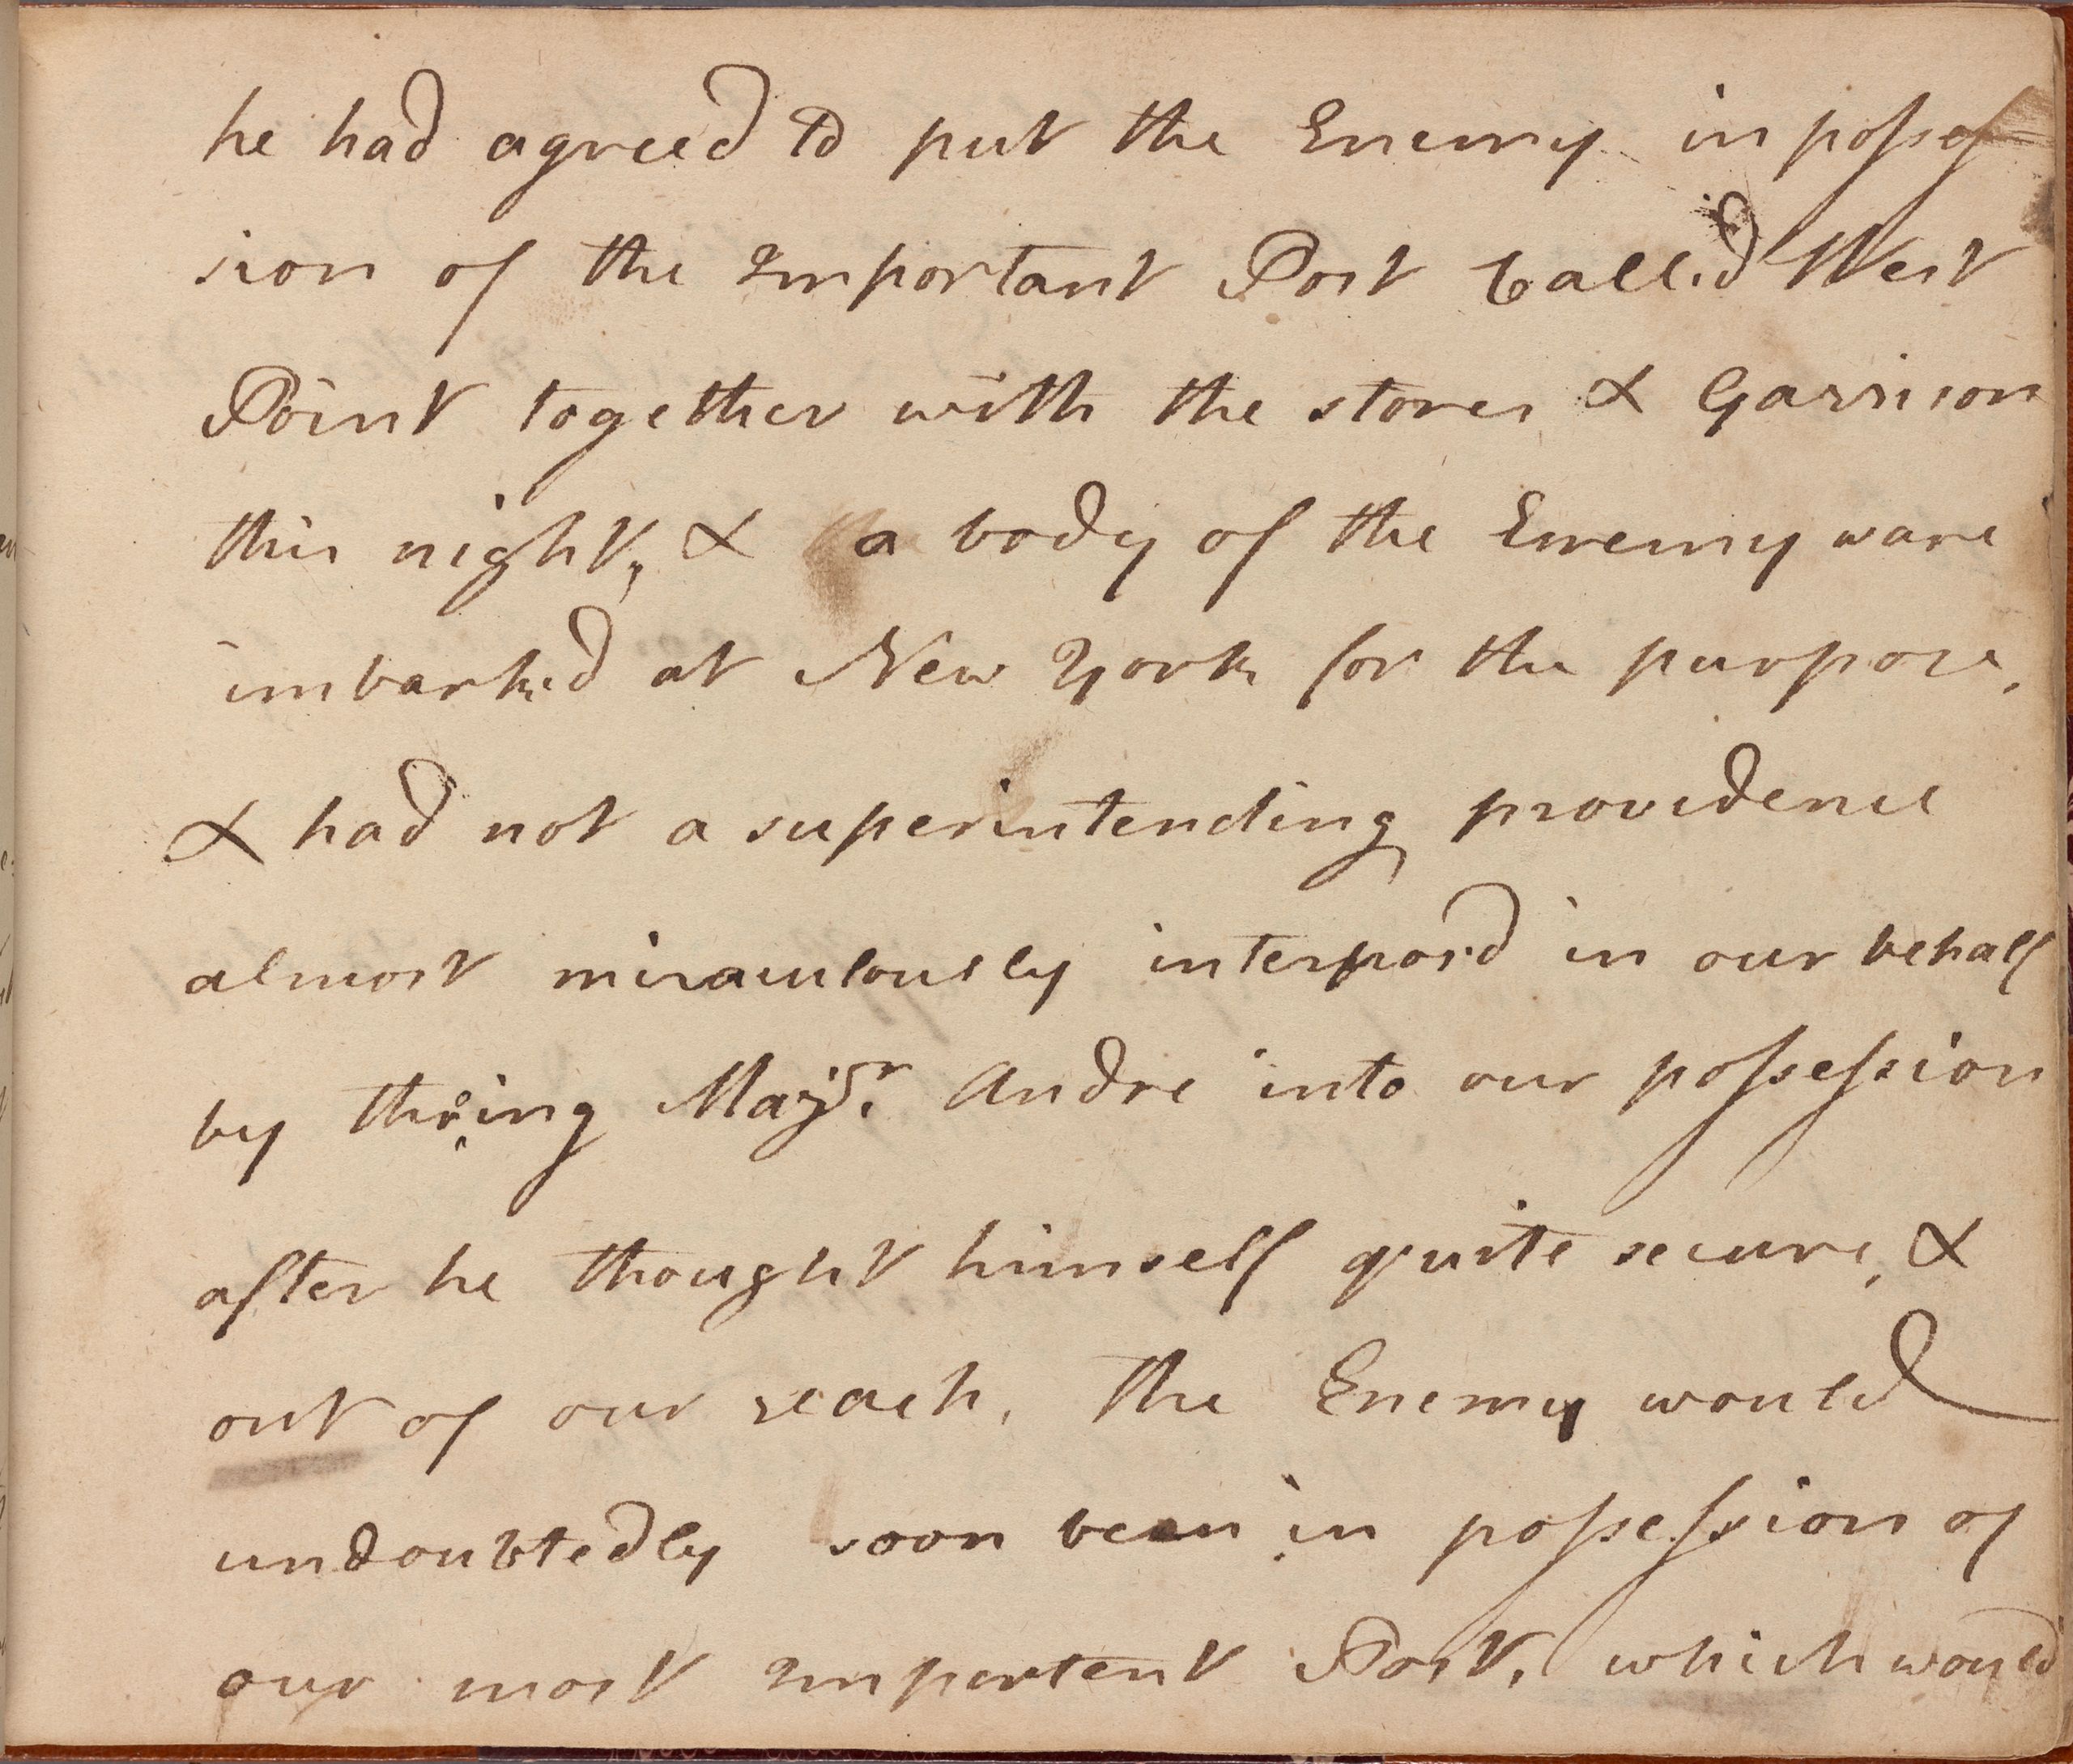 he had agreed to put the Enemy in posses
sion of the Important Post Called West
Point together with the stores & Garrison
this night, & a body of the Enemy ware
imbarked at New York for the purpose,
& had not a superintending providence
almost miraculously interposd in our behalf
by throing Majr. Andre into our possession
after he thought himself quite secure, &
out of our reach, the Enemy would
undoubtedly soon been in possession of
our most Importent Post, which would